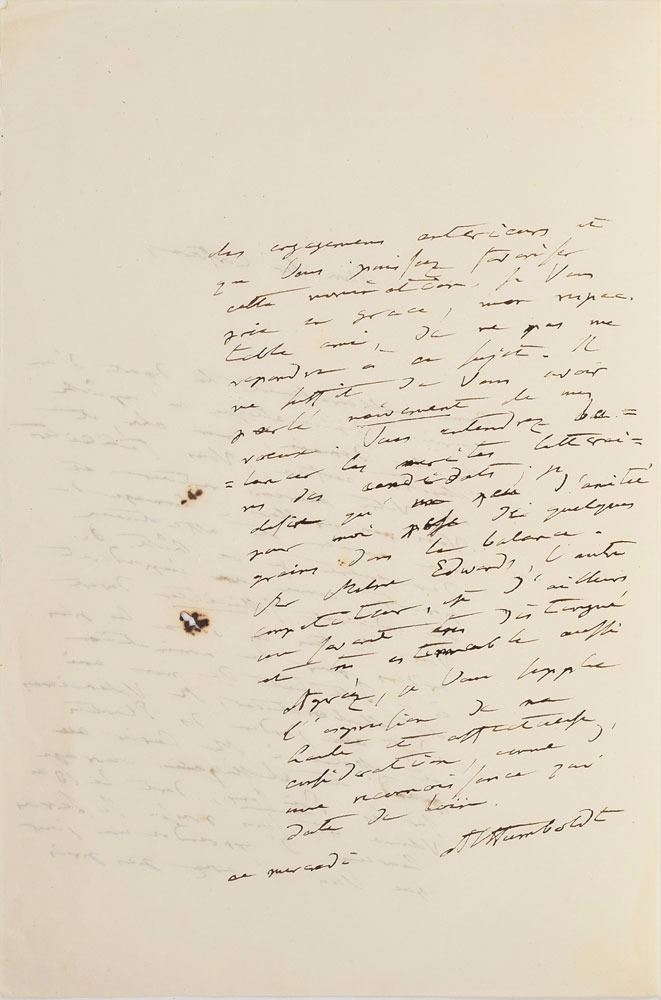 des engagemens anterieurs et
que Vous puissiez favoriser
cette nomination. Je Vous
prie en grace, mon respec-
table ami, de ne pas me
repondre a ce sujet. Il
me suffit de Vous avoir
parlé naivement de mes
voeux. Vous entendrez ba=
=lancer les merites litterai=
res des candidats. je
desire qu' l'amitié
pour moi pese de quelques
grains dans la balance.
Mr Milne Edwards, l'autre
competiteur, est d'ailleurs
un savant distingué
et estimable aussi
Agréez, je Vous supplie
l'expression de ma
haute et affectueuse
consideration, comme d'
une reconnoissance qui
date de loin.
AlHumboldt
ce mercredi